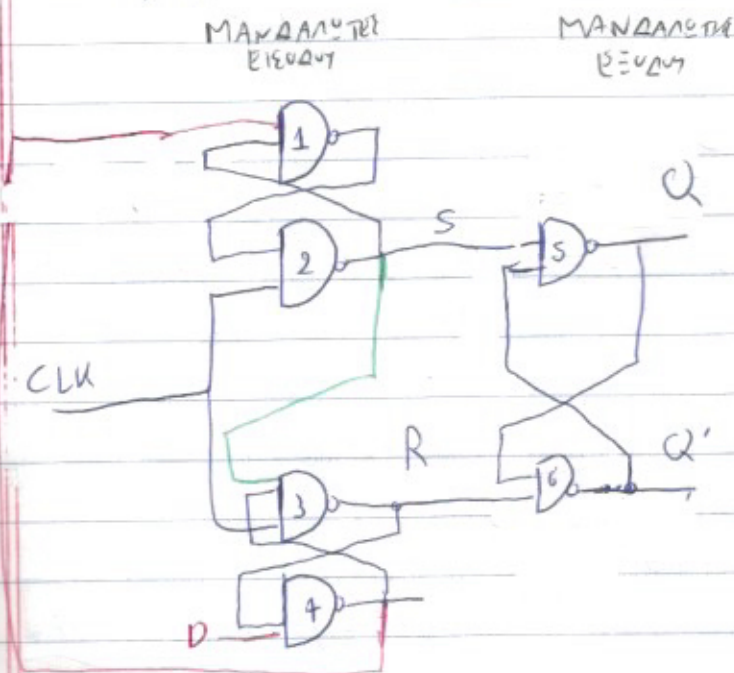 ΜΑΝΔΑΛΩΤΗΣ
ΕΙΣΟΔΟΥ
ΜΑΝΔΑΛΩΤΗΣ
ΕΞΟΔΟΥ
1
2
S
5
Q
CLK
3
R
6
Q'
4
D